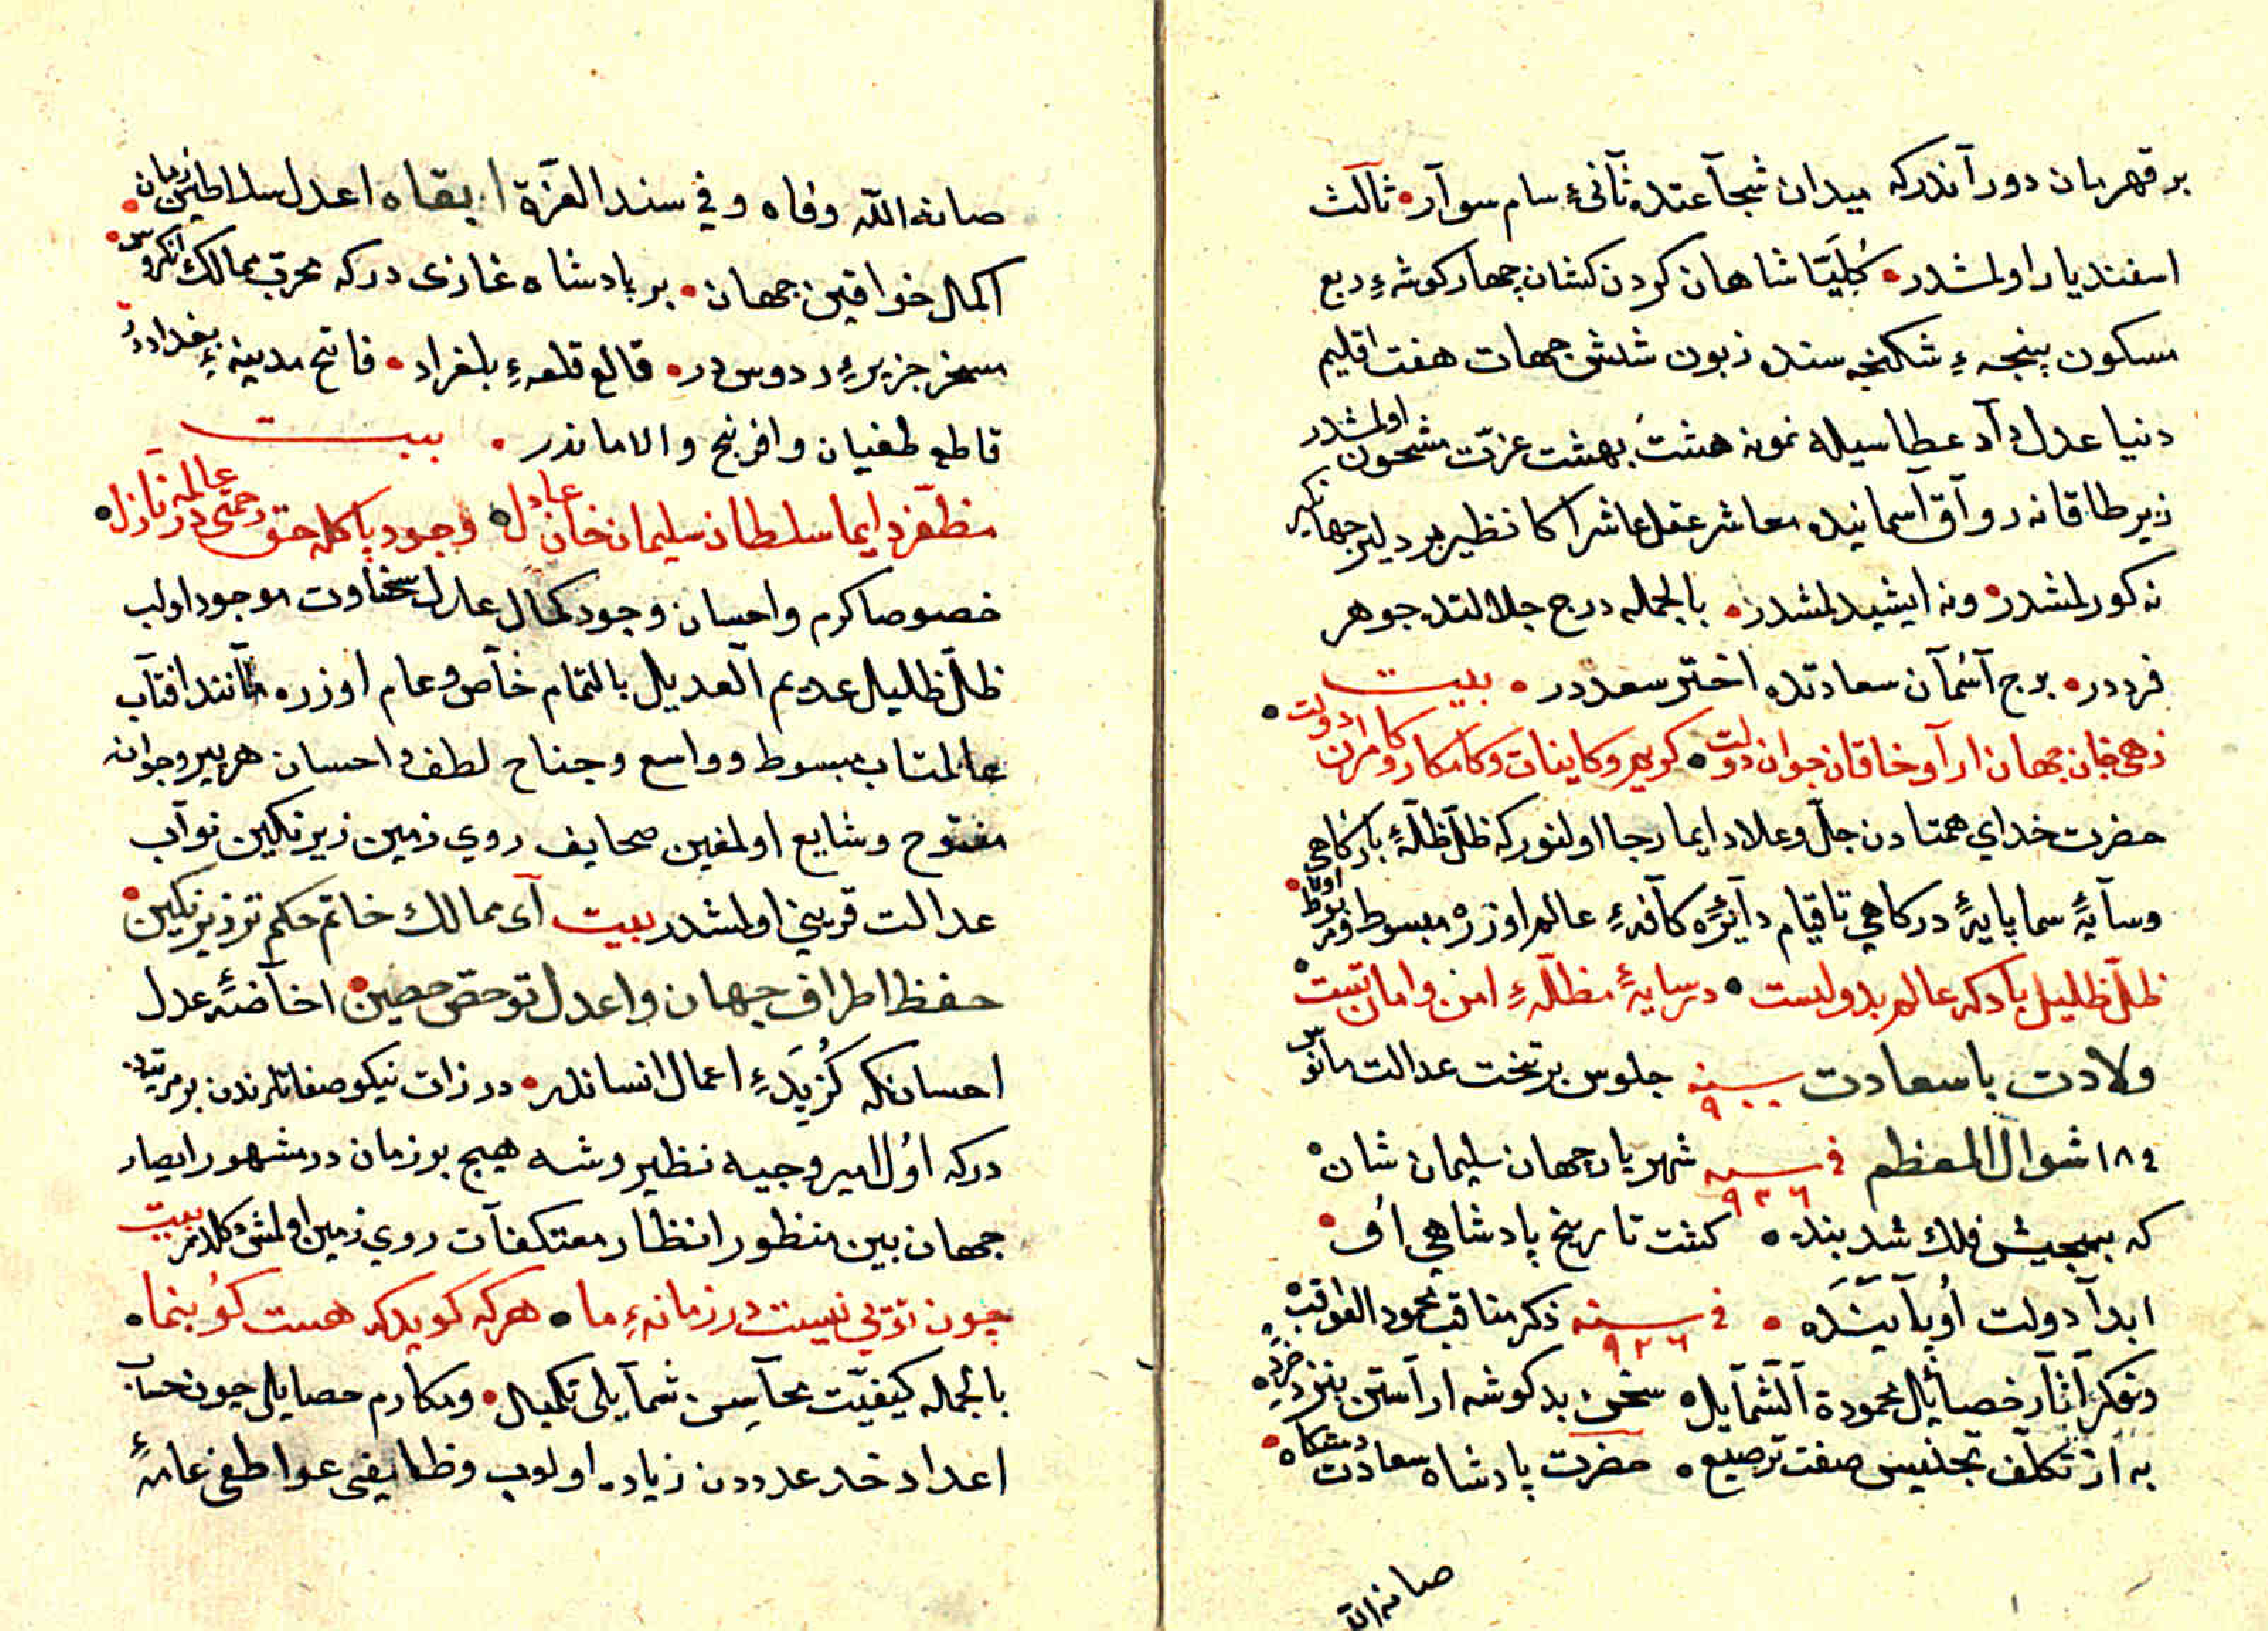 بر قهرمان دوراندركه ميدان شجاعتده ثانیٔ سام سوار ثالث
اسفنديار اولمشدر كليّا شاهان كردن كشان چهار كوشهٔ ربع
مسكون پنجهٔ شكنجه سنده زبون شش جهات هفت اقليم
دنيا عدل داد عطاسيله نمونه هشت بهشت عزّت مشحون اولمشدر
زير طاقانه رواق آسمانيده معاشر عقل عاشر اكا نظير بر دلير جهانكير
نه كورلمشدر ونه ايشيدلمشدر بالجمله درج جلالتده جوهر
فرددر برج آسمان سعادتده اختر سعددر بيت
زهی خان جهان ارا و خاقان جوان دولت كوهر و كاينات و كامكار و كامران دولت
حضرت خدای همتادن جلّ وعلا دايما رجا اولنور كه ظلّ ظلّهٔ باركاهی
وسايهٔ سما پايهٔ دركاهی تا قيام دايرهٔ كافهٔ عالم اوزره مبسوط و مربوط اوله
ظلّ ظليل باد كه عالم بدولست در سايهٔ مظلّهٔ امن وامان تست
ولادت باسعادت سنه ٩٠٠ جلوس بر تخت عدالت مأنوس
فی ١٨ شوال المعظم فی سنه ٩٢٦ شهريار جهان سليمان شان
كه بجيش فلك شد بنده كشت تاريخ پادشاهی او
ابدا دولت او پاينده فی سنه ٩٢٦ ذكر مناقب محمود العواقب
وتفكر آثار خصائل محمودة الشمايل سخن بد كوشه اراستن بنزد خرد
به از تكلّف تجنيس صفت ترصيع حضرت پادشاه سعادت دستكاه
صانه الله
صانه الله وقاه وفی سند العزّة ابقاه اعدل سلاطين زمان
اكمل خواقين جهان بر پادشاه غازی دركه محرب ممالك انكروس
مسخر جزيرهٔ ردوس در قالع قلعهٔ بلغراد فاتح مدينهٔ بغداددر
قاطع طغيان وافرنج والاماندر بيت
مظفّر دايما سلطان سليمان خان عادل وجود پاكله حق رحمتی در عالمه نازل
خصوصا كرم واحسان وجود كمال عدل سخاوت موجود اولب
ظلّ ظليل عديم العديل بالتمام خاص وعام اوزره مانند افتاب
عالمتاب مبسوط وواسع وجناح لطف واحسان هر پير وجوانه
مفتوح وشايع اولمغين صحايف روی زمين زير نكين نوآب
عدالت قرينی اولمشدر بيت ای ممالك خاتم حكم تو زير نكين
حفظ اطراف جهان واعدل تو حصّ حصين اخاضهٔ عدل
احسانكه كزيدهٔ اعمال انساندر در ذات نيكو صفاتلرندن بر مرتبه
دركه اول امير وجيه نظير وشه هيچ بر زمان در مشهور ابصار
جهان بين منظور انظار معتكفات روی زمين اولمش دكلدر بيت
چون توئی نيست در زمانهٔ ما هر كه كويد كه هست كو بنما
بالجمله كيفيّت محاسن شمايلی تكميل ومكارم حصايلی چون حساب
اعداد خد عدددن زياده اولوب وظايفی عواطفی عامهٔ